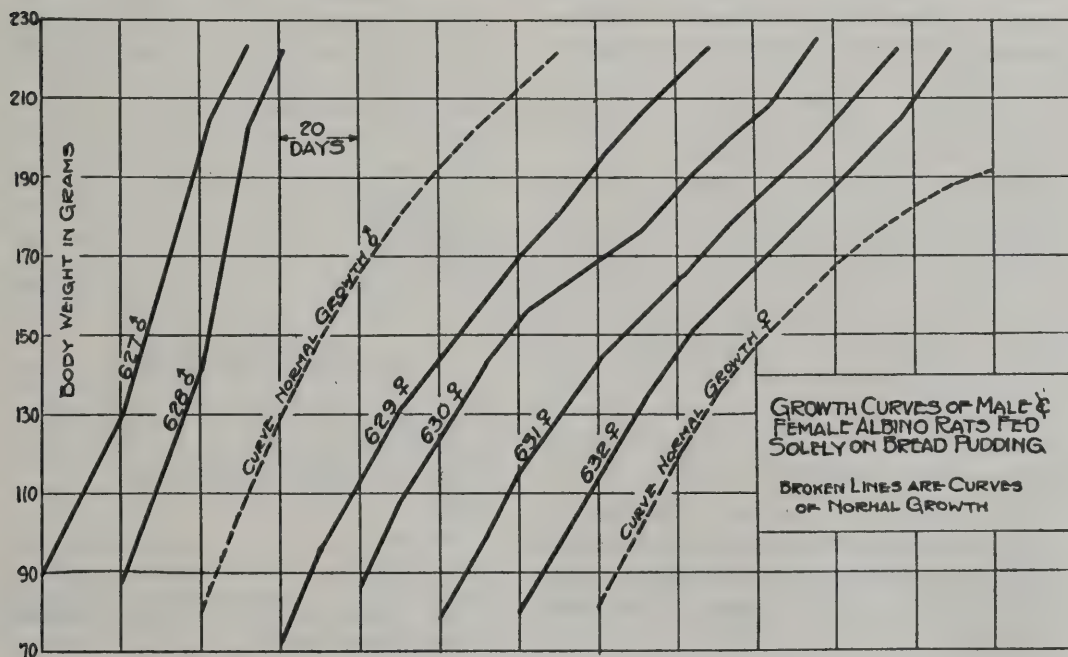 230
210
190
170
150
130
110
90
70
BODY WEIGHT IN GRAMS
20
DAYS
627 ♂
628 ♂
CURVE NORMAL GROWTH ♂
629 ♀
630 ♀
631 ♀
632 ♀
CURVE NORMAL GROWTH ♀
GROWTH CURVES OF MALE &
FEMALE ALBINO RATS FED
SOLELY ON BREAD PUDDING
BROKEN LINES ARE CURVES
OF NORMAL GROWTH